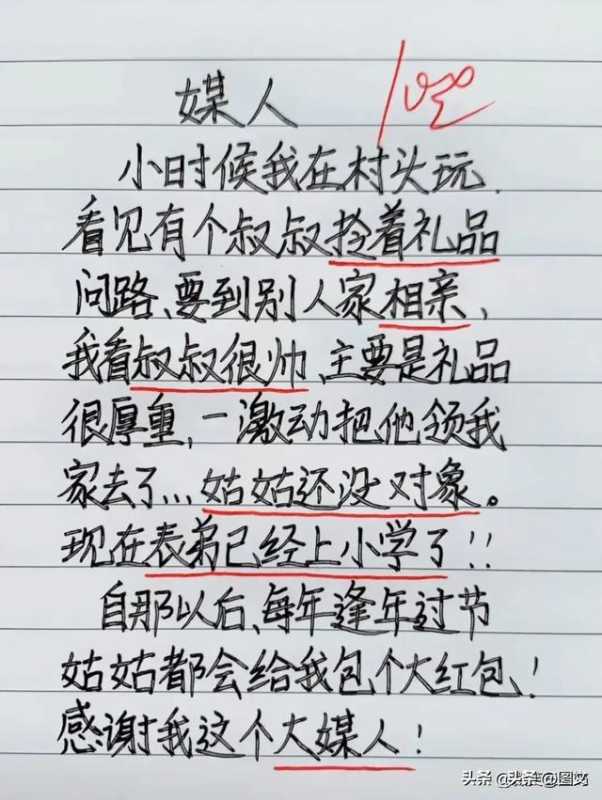 媒人
小时候我在村头玩、
看见有个叔叔拎着礼品
问路、要到别人家相亲、
我看叔叔很帅、主要是礼品
很厚重,一激动把他领我
家去了...姑姑还没对象。
现在表弟已经上小学了!!
自那以后、每年逢年过节
姑姑都会给我包个大红包!
感谢我这个大媒人!